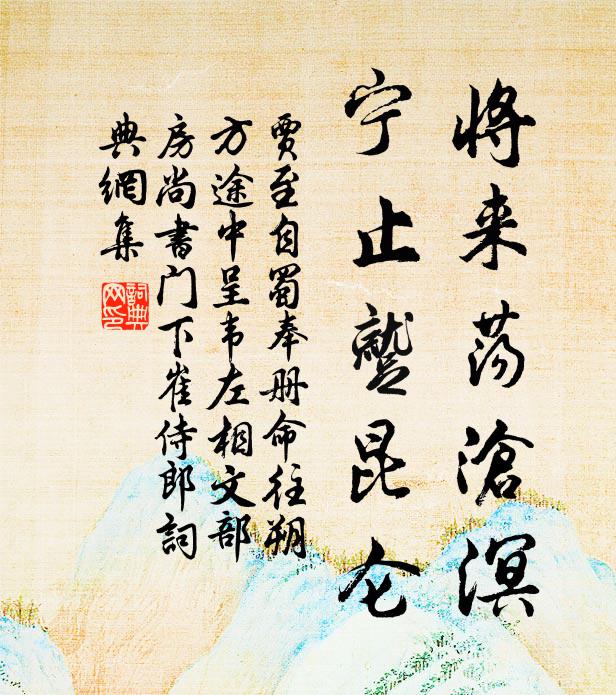 将来荡滄溟
宁止昆仑
賈至自蜀奉册命往朔
方途中呈韦左相文部
房尚書门下崔侍郎詞
典網集
詞典
网印